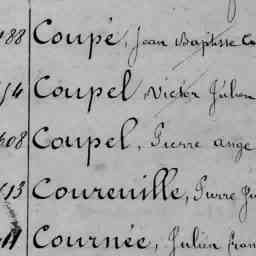 188 Coupé, Jean Baptiste
Coupel Victor Julien
Coupel, Pierre ange
Coureuille, Pierre
Cournée, Julien